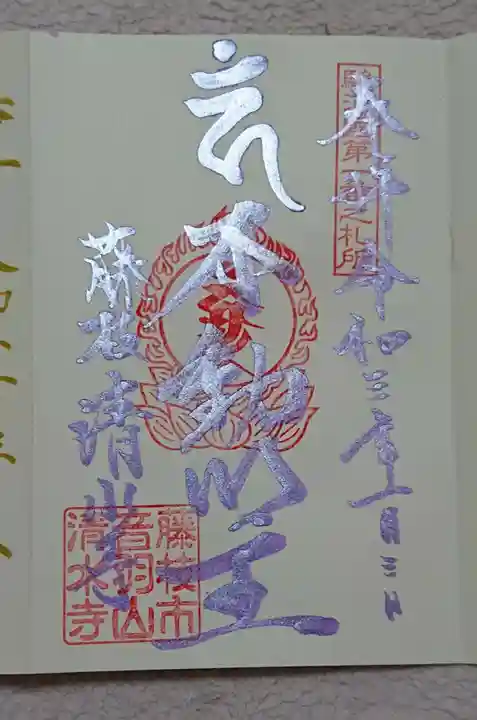 奉拝 令和三年一月三日
駿河国第一番之札所
不動明王
藤枝 清水寺
藤枝市
音羽山
清水寺